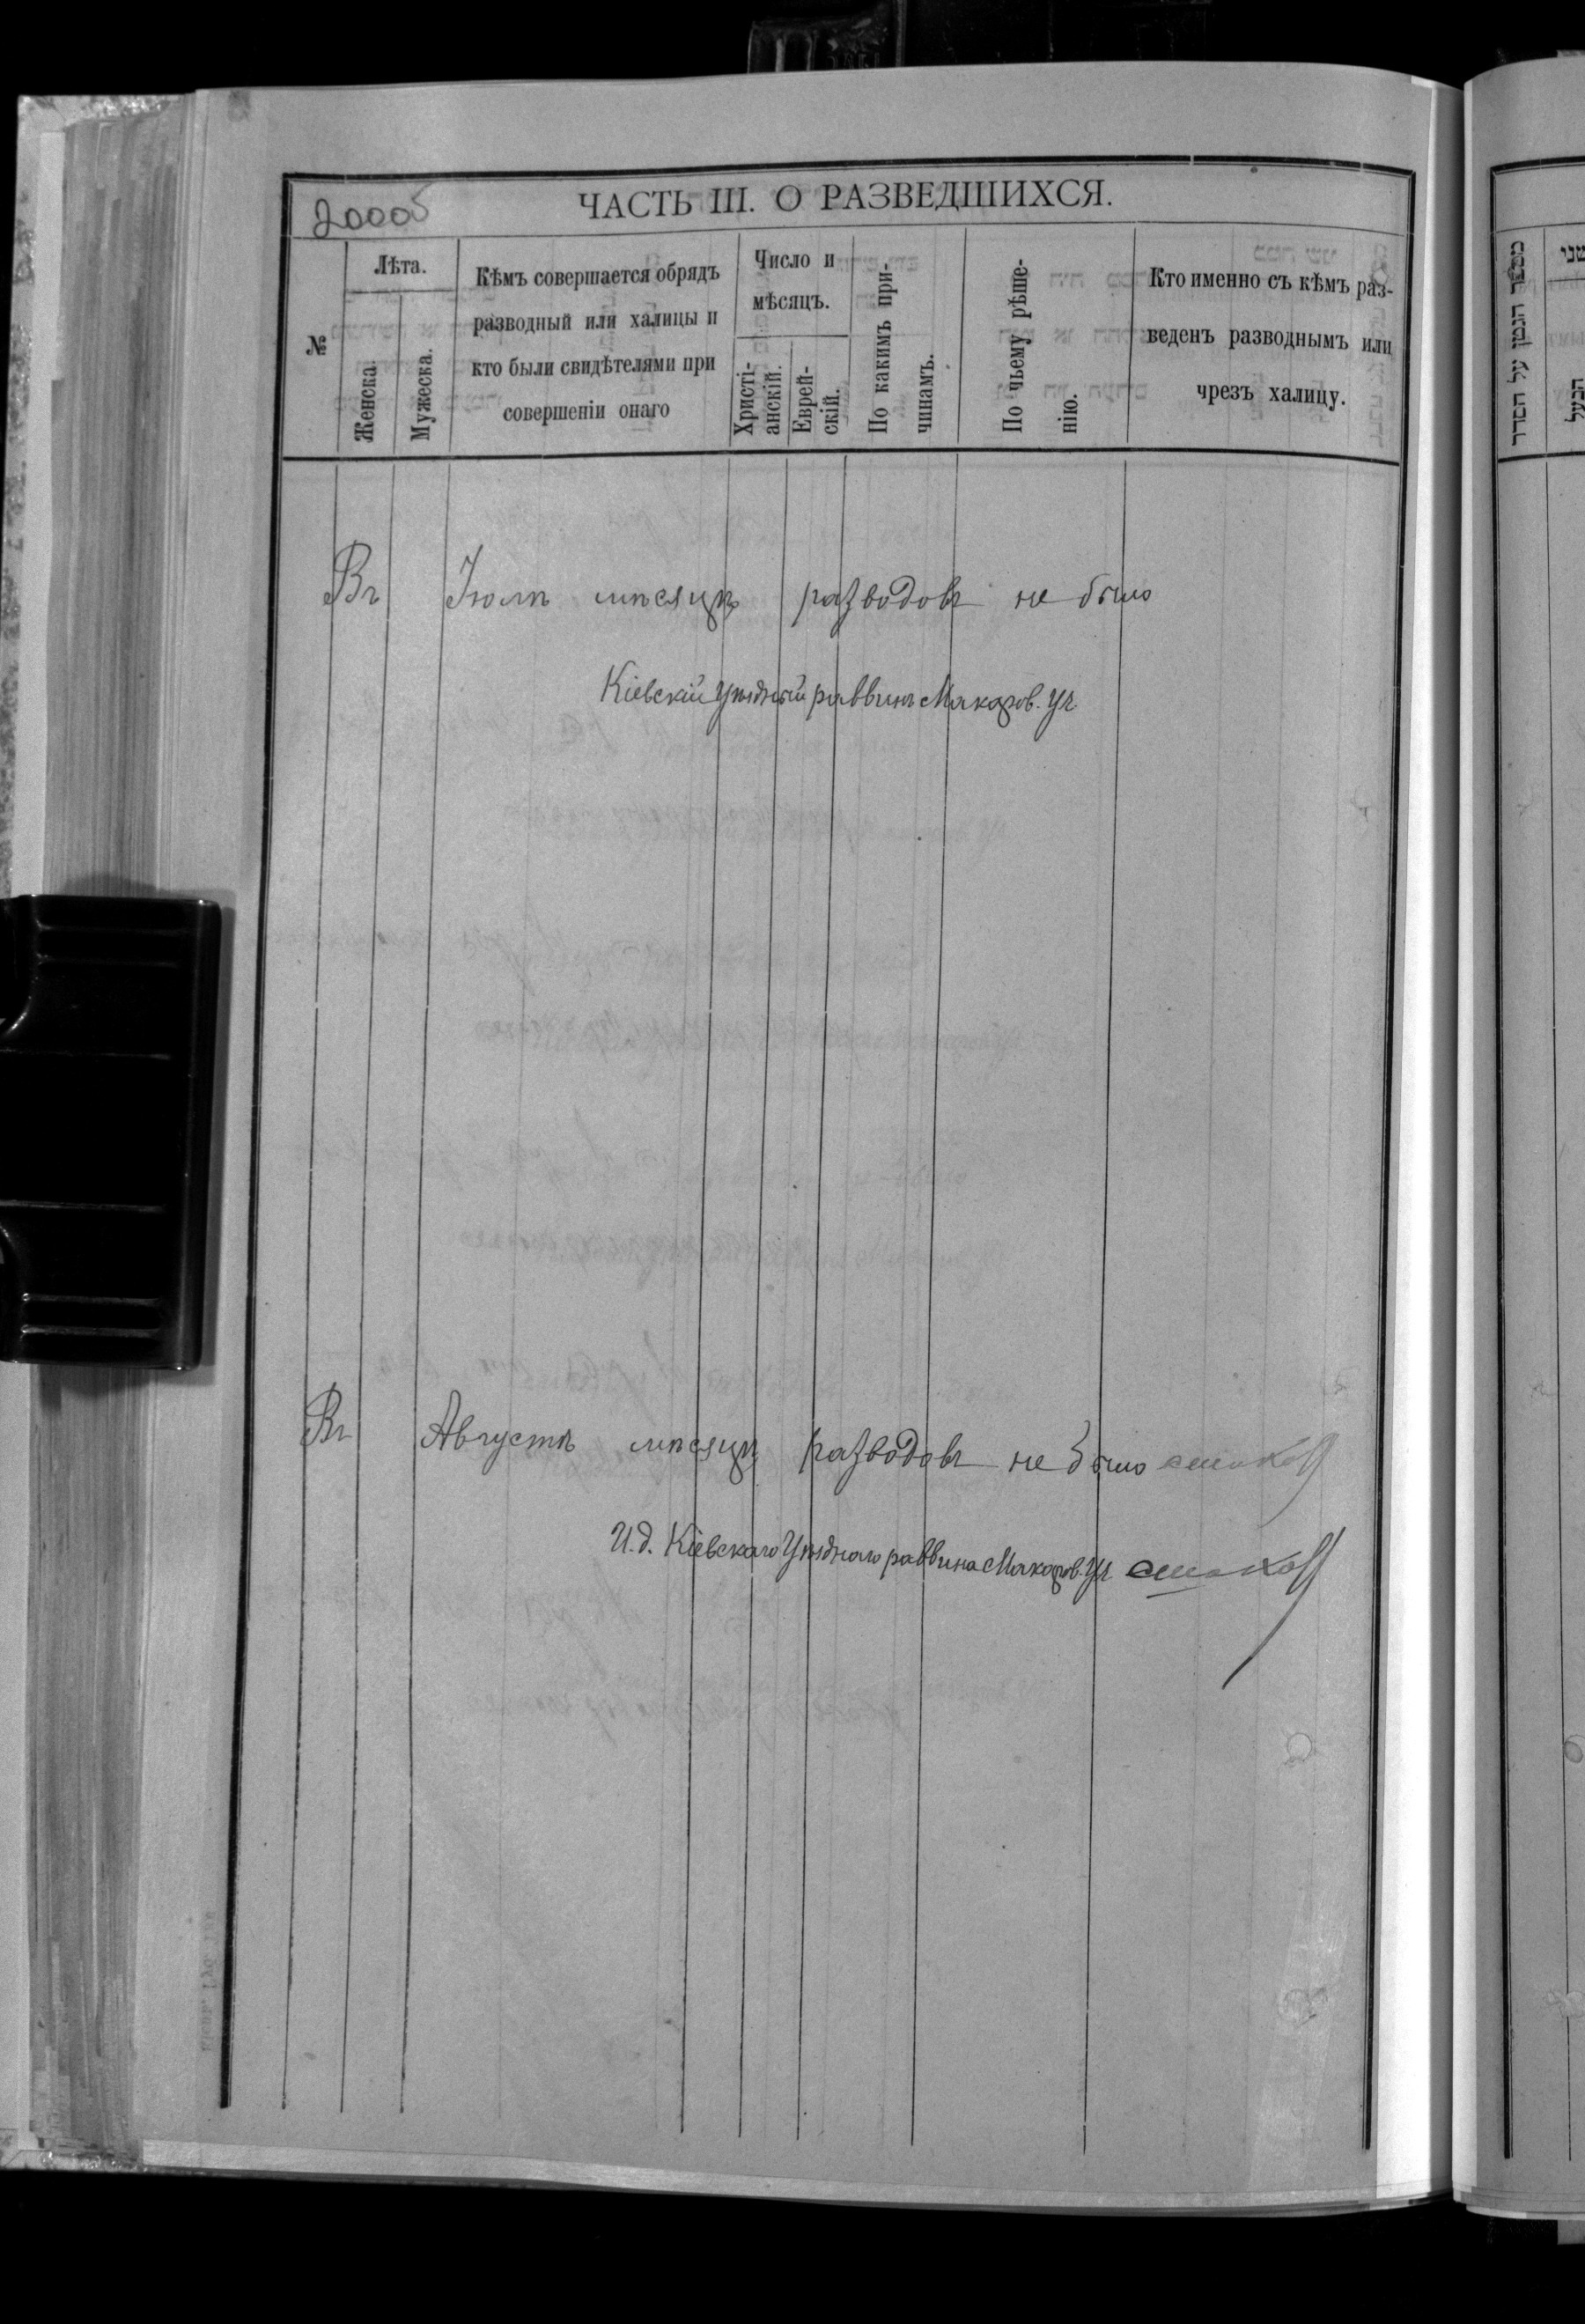 2000б
ЧАСТЬ III. О РАЗВЕДШИХСЯ.
№
Лѣта.
Женска.
Мужеска.
Кѣмъ совершается обрядъ
разводный или халицы и
кто были свидѣтелями при
совершеніи онаго
Число и
мѣсяцъ.
Христі-
анскій.
Еврей-
скій.
По какимъ при-
чинамъ.
По чьему рѣше-
нію.
Кто именно съ кѣмъ раз-
веденъ разводнымъ или
чрезъ халицу.
מספר הגמן על הסדר
שני
הבעל
Въ Іюлѣ мѣсяцѣ разводовъ не было
Кіевскій Уѣздный раввинъ Макаров. Уч.
Въ Августѣ мѣсяцѣ разводовъ не было
И.д. Кіевскаго Уѣзднаго раввина Макаров. Уч.